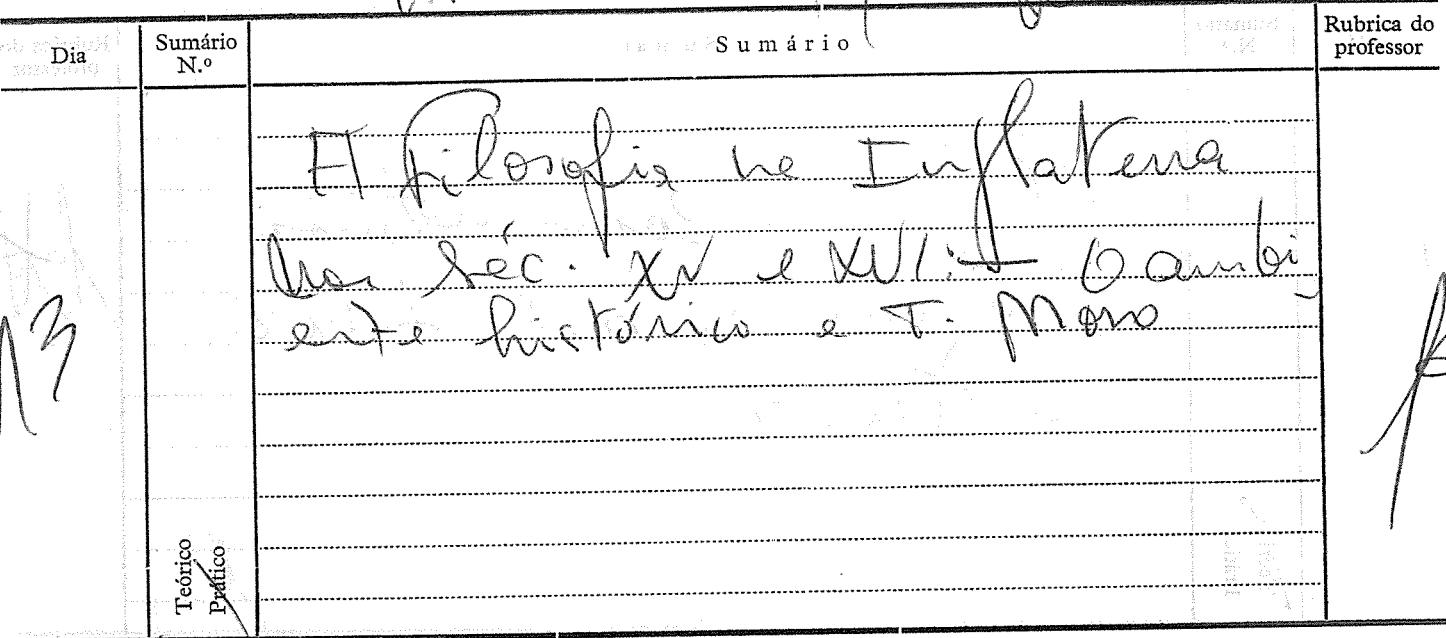 Dia
Sumário
N.º
Sumário
Rubrica do
professor
A filosofia na Inglaterra
nos séc. XV e XVI: O ambi
ente histórico e T. Moro
13
Teórico
Prático